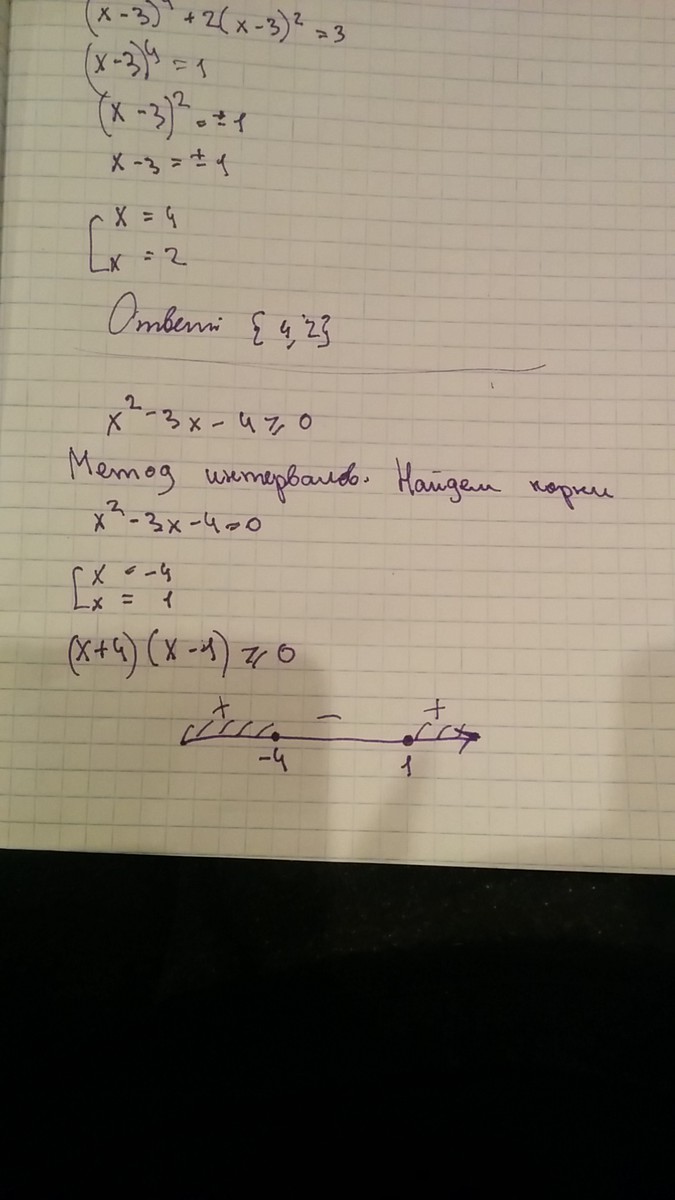 (x-3)⁴ + 2(x-3)² = 3
(x-3)⁴ = 1
(x-3)² = ±1
x-3 = ±1
[ x = 4
x = 2
Ответ: {4; 2}
x² - 3x - 4 ⩾ 0
Метод интервалов. Найдем корни
x² - 3x - 4 = 0
[ x = -4
x = 1
(x+4)(x-1) ⩾ 0
+ − +
-4 1